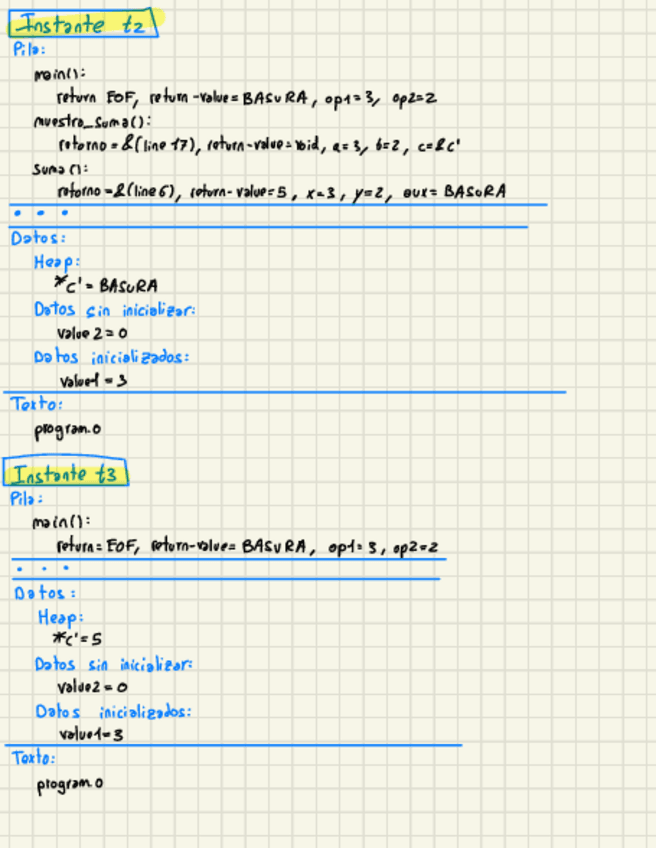 Instante t2
Pila:
main():
return EOF, return-value = BASURA, op1 = 3, op2=2
nuestra_suma():
retorno = &(line 17), return-value = void, a = 3, b=2, c=&c'
suma():
retorno = &(line 6), return-value = 5, x = 3, y = 2, aux = BASURA
• • •
Datos:
Heap:
*c' = BASURA
Datos sin inicializar:
value 2 = 0
Datos inicializados:
value1 = 3
Texto:
program.o
Instante t3
Pila:
main():
return = EOF, return-value = BASURA, op1 = 3, op2=2
• • •
Datos:
Heap:
*c' = 5
Datos sin inicializar:
value2 = 0
Datos inicializados:
value1=3
Texto:
program.o